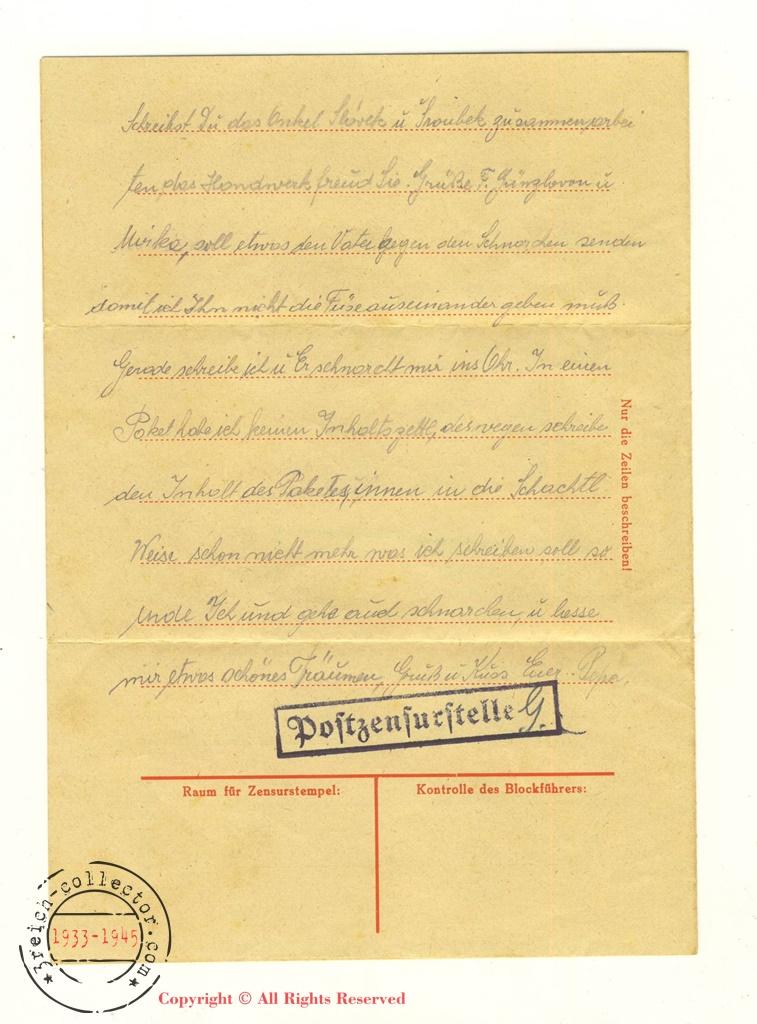 Schreibst Du das Onkel Slávek u Troubek zusammenarbei
ten, das Handwerk freud Sie. Grüße F. u
Mirka, soll etwas den Vater gegen den Schnarchen senden
somit ich Ihn nicht die Füse auseinander geben muß.
Gerade schreibe ich u Er schnarcht mir ins Ohr. In einen
Paket habe ich keinen Inhaltszettl, deswegen schreibe
den Inhalt des Paketes, innen in die Schachtl
Weise schon nicht mehr was ich schreiben soll so
ende Ich und gehe auch schnarchen, u lasse
mir etwas schönes Träumen, Gruß u Kuss Euer Papa.
Nur die Zeilen beschreiben!
Postzensurstelle G.
Raum für Zensurstempel:
Kontrolle des Blockführers:
3reich-collector.com
1933-1945
Copyright © All Rights Reserved